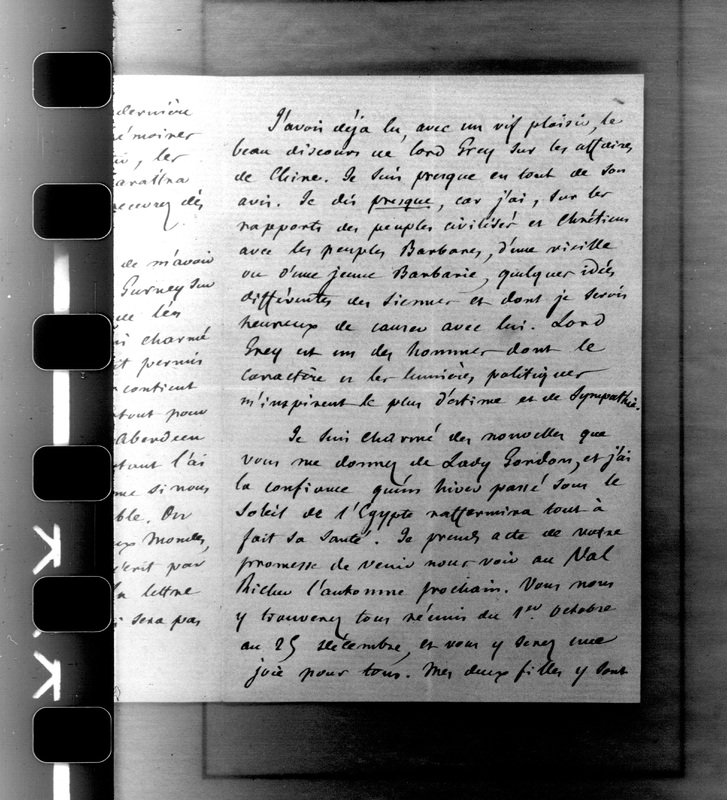 dernière
émoires
, les
arattra
recevrez dès
de m'avoir
Gurney sur
que les
charmé
it permis
contient
tout pour
Aberdeen
tant l'ai
me si nous
ble. On
ux Mondes,
écrit par
la lettre
i sera pas
J'avois déja lu, avec un vif plaisir, le
beau discours de lord Grey sur les affaires
de Chine. Je suis presque en tout de son
avis. Je dis presque, car j'ai, sur les
rapports des peuples civilisés et Chrétiens
avec les peuples Barbares, d'une vieille
ou d'une jeune Barbarie, quelques idées
différentes des siennes et dont je serois
heureux de causer avec lui. Lord
Grey est un des hommes dont le
caractère et les lumières politiques
m'inspirent le plus d'estime et de sympathie.
Je suis charmé des nouvelles que
vous me donnez de Lady Gordon, et j'ai
la confiance qu'un hiver passé sous le
Soleil de l'Egypte raffermira tout à
fait sa santé. Je prends acte de votre
promesse de venir nous voir au Val
Richer l'automne prochain. Vous nous
y trouverez tous réunis du 1er Octobre
au 25 décembre, et vous y serez une
joie pour tous. Mes deux filles y sont